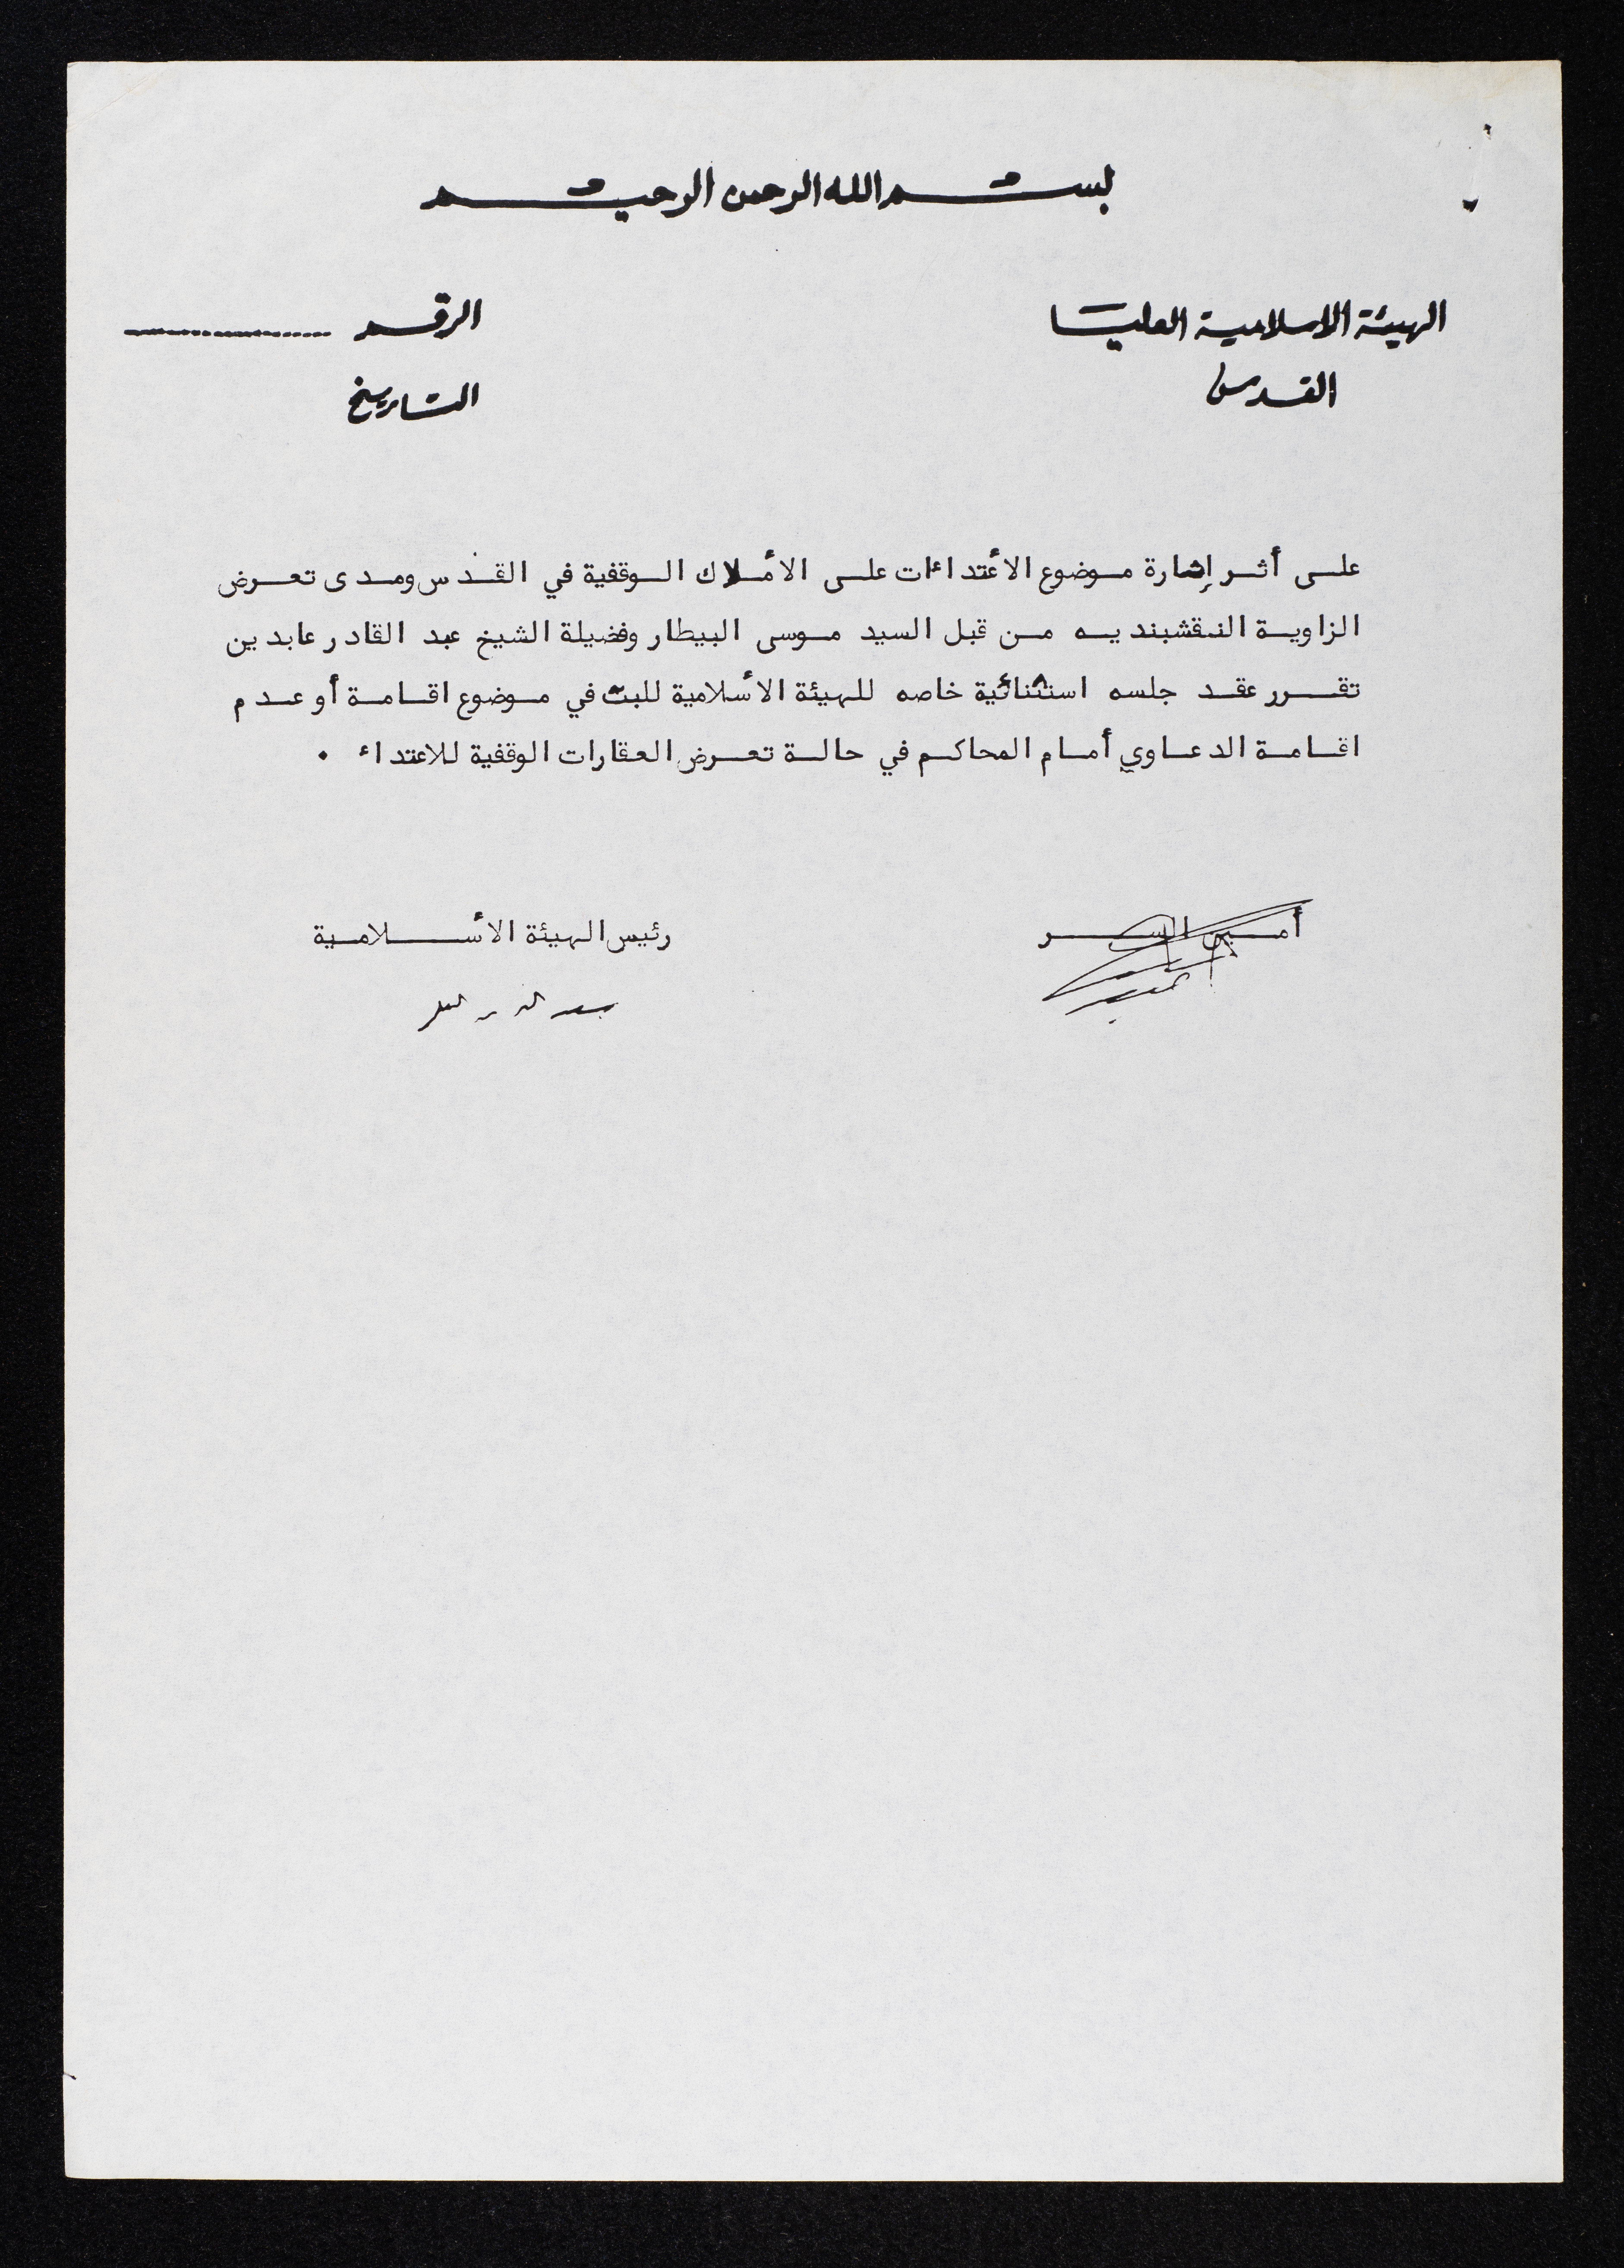 بسم الله الرحمن الرحيم
الهيئة الاسلامية العليا
الرقم ....................
القدس
التاريخ
على أثر إشارة موضوع الأعتداءات على الأملاك الوقفية في القدس ومدى تعرض
الزاوية النقشبنديه من قبل السيد موسى البيطار وفضيلة الشيخ عبد القادر عابدين
تقرر عقد جلسه استثنائية خاصه للهيئة الأسلامية للبت في موضوع اقامة أو عدم
اقامة الدعاوي أمام المحاكم في حالة تعرض العقارات الوقفية للاعتداء .
أمين السر
رئيس الهيئة الأسلامية